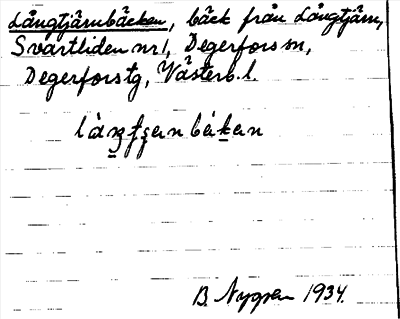 Långtjärnbäcken, bäck från Långtjärn,
Svartliden nr 1, Degerfors sn,
Degerfors tg, Västerb. l.
B. Nygren 1934.